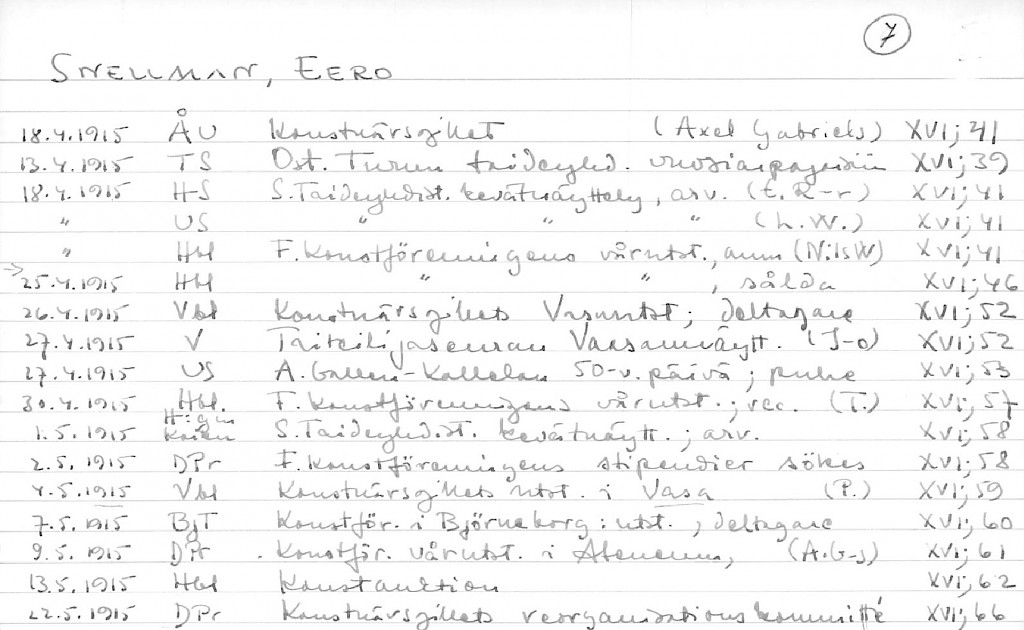 7
SNELLMAN, EERO
18.4.1915 ÅU Konstnärsgillet (Axel Gabriels) XVI; 41
13.4.1915 TS Ost. Turun taideyhd. vuosiarpajaisiin XVI; 39
18.4.1915 H-S S. Taideyhdist. kevätnäyttely, arv. (E. R-r) XVI; 41
" US " " " (L.W.) XVI; 41
" Hbl F. Konstföreningens vårutst., anm (NilsW) XVI; 41
→ 25.4.1915 Hbl " " , sålda XVI; 46
26.4.1915 Vbl Konstnärsgillets Vasautst; deltagare XVI; 52
27.4.1915 V Taiteilijaseuran Vaasannäytt. (J-o) XVI; 52
27.4.1915 US A. Gallen-Kallelan 50-v. päivä; puhe XVI; 53
30.4.1915 Hbl. F. Konstföreningens vårutst.; rec. (T.) XVI; 57
1.5.1915 H:gin Kaiku S. Taideyhdist. kevätnäytt.; arv. XVI; 58
2.5.1915 DPr F. Konstföreningens stipendier sökes XVI; 58
4.5.1915 Vbl Konstnärsgillets utst. i Vasa (P.) XVI; 59
7.5.1915 BjT Konstför. i Björneborg: utst., deltagare XVI; 60
9.5.1915 DPr. Konstför. vårutst. i Ateneum, (A.G-s) XVI; 61
13.5.1915 Hbl Konstauktion XVI; 62
22.5.1915 DPr Konstnärsgillets reorganisationskommitté XVI; 66